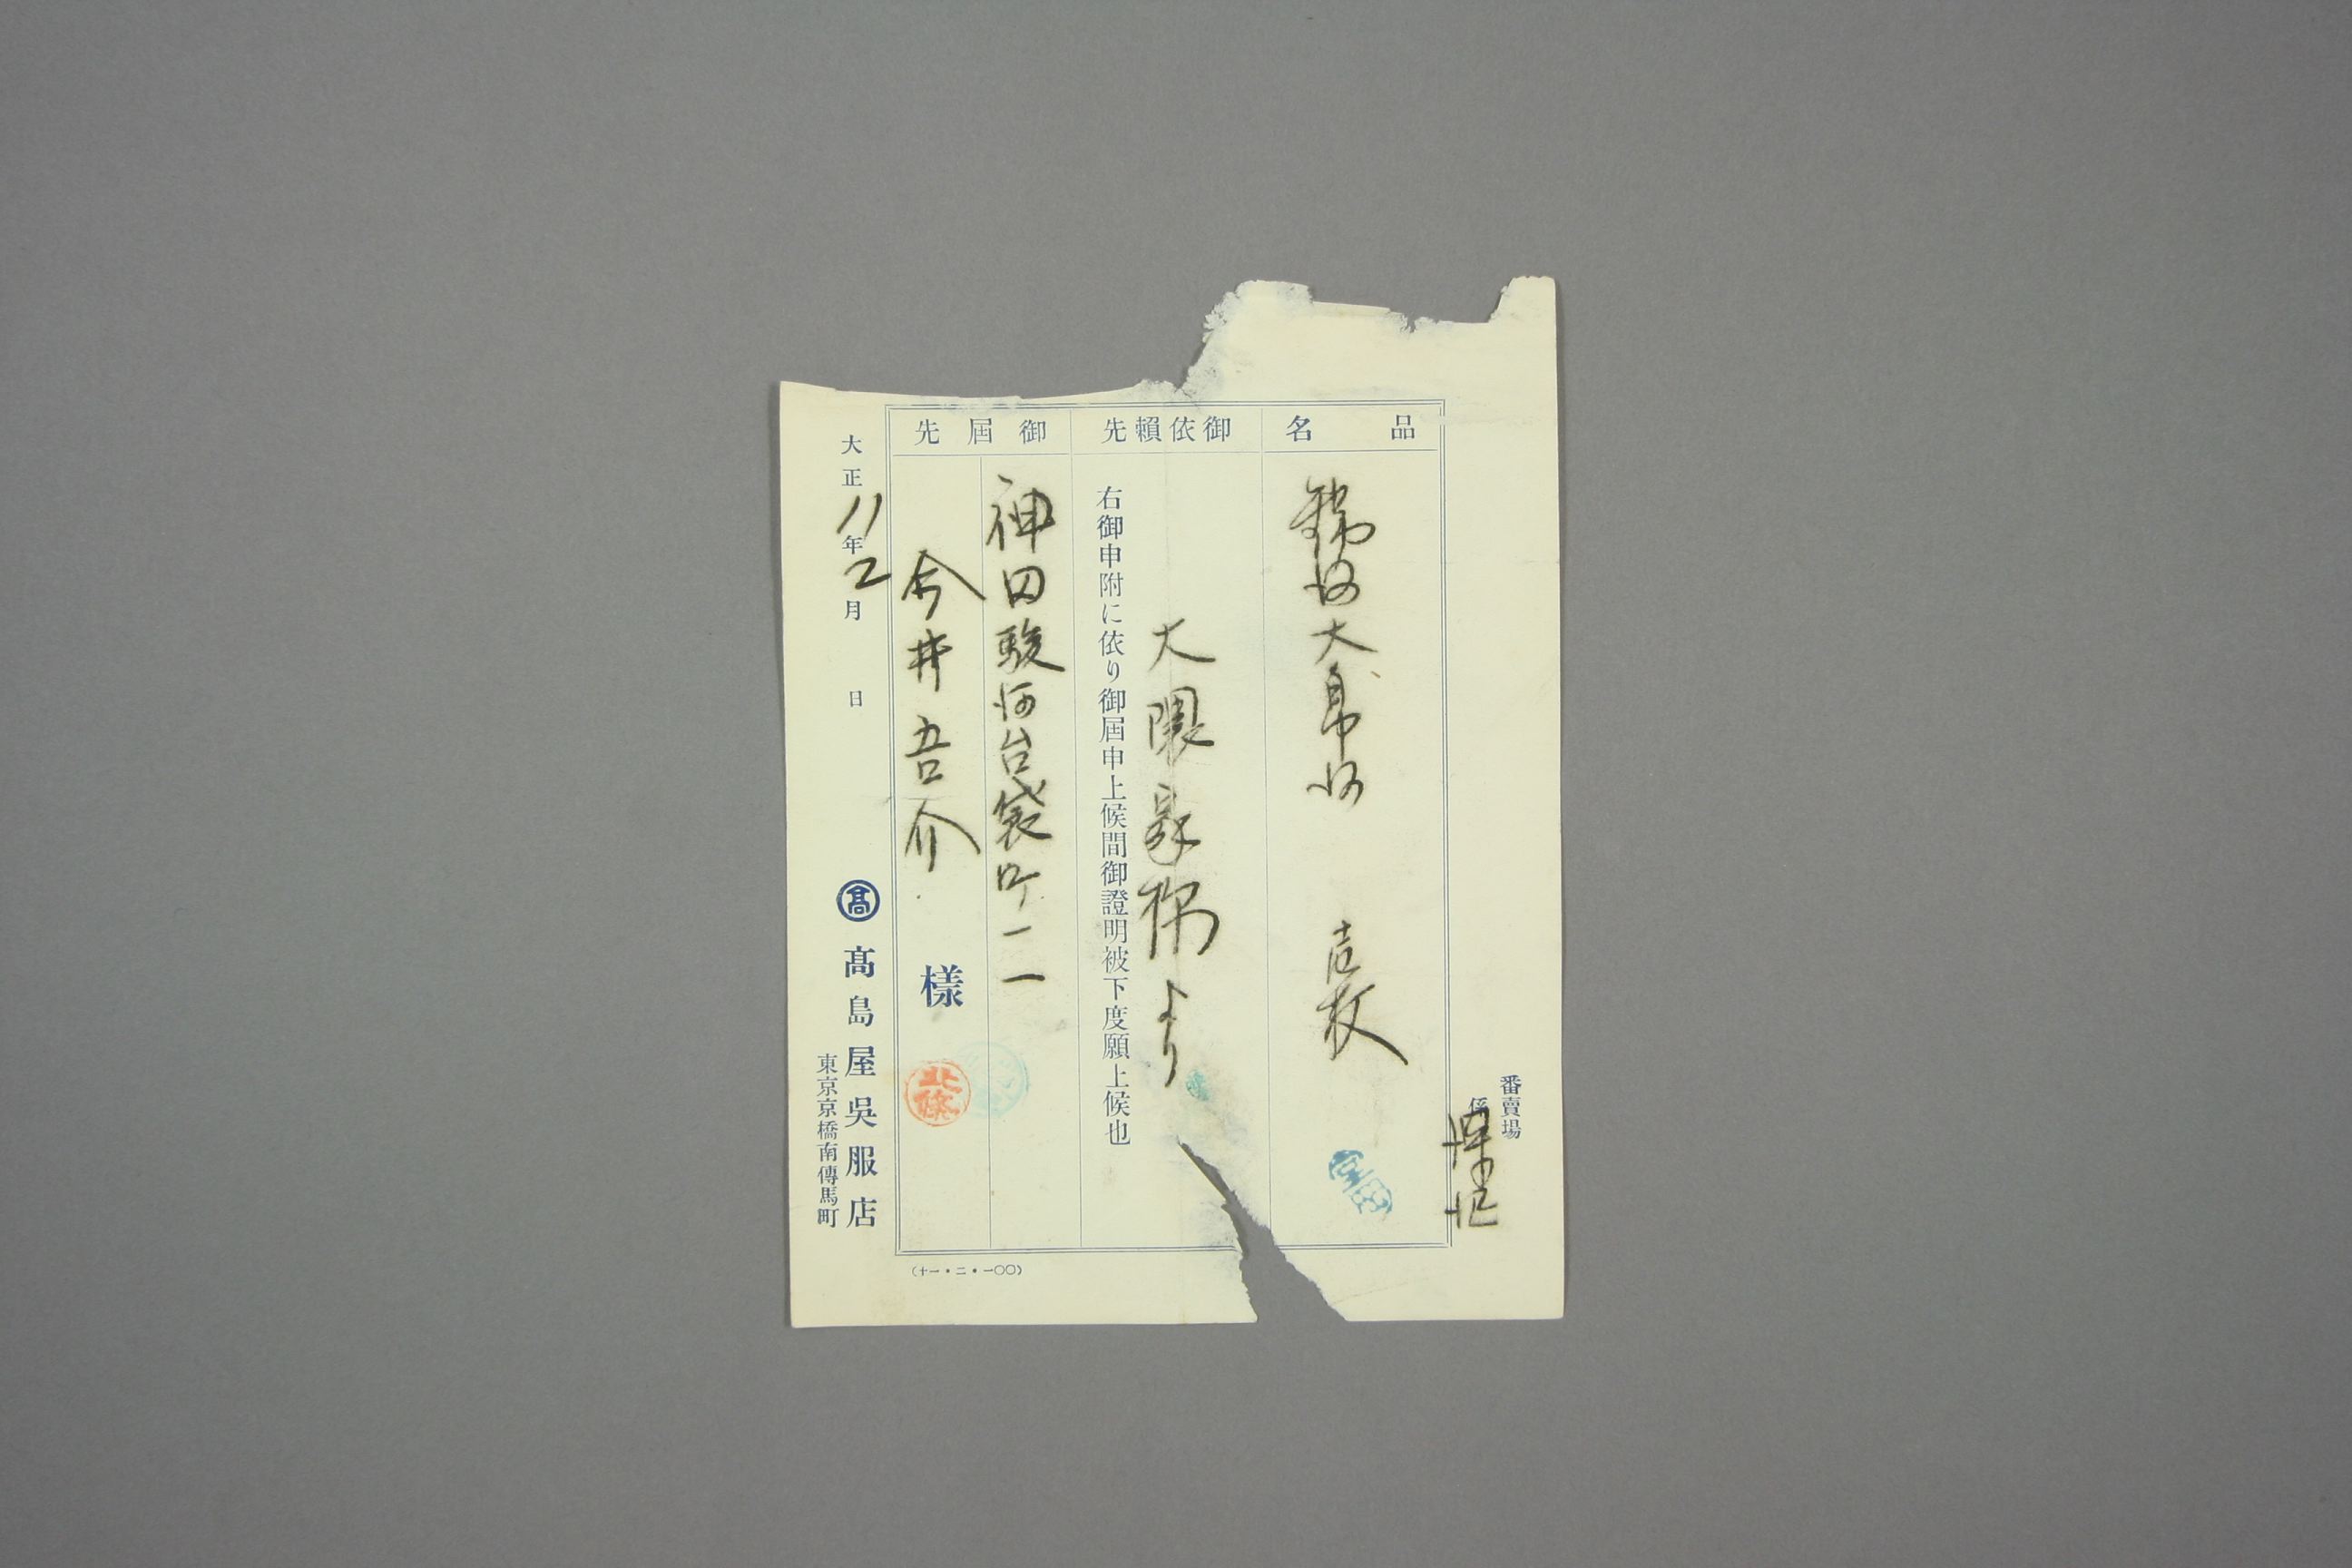 番賣場
係
品名
大
壱枚
御依賴先
大隈家様より
右御申附に依り御屆申上候間御證明被下度願上候也
御屆先
神田駿河台袋町一一
今井吾介 様
北條
大正11年2月 日
高 髙島屋吳服店
東京京橋南傳馬町
(十一・二・一〇〇)